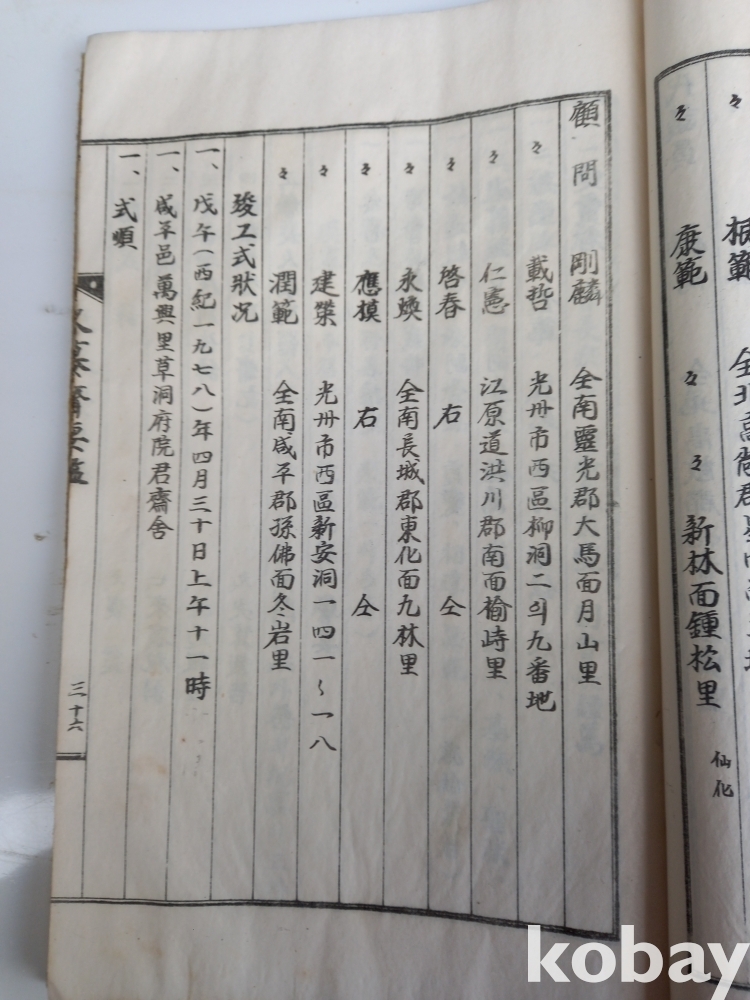 々 康範 々 々 新林面鍾松里 仙化
顧問 剛麟 全南靈光郡大馬面月山里
々 載哲 光州市西區柳洞二의九番地
々 仁憲 江原道洪川郡南面楡峙里
々 啓春 右 仝
々 永煥 全南長城郡東化面九林里
々 應模 右 仝
々 建榮 光州市西區新安洞一四一~一八
々 潤範 全南咸平郡孫佛面冬岩里
竣工式狀况
一、戊午(西紀一九七八)年四月三十日上午十一時
一、咸平邑萬興里草洞府院君齋舍
一、式順
三十六
kobay